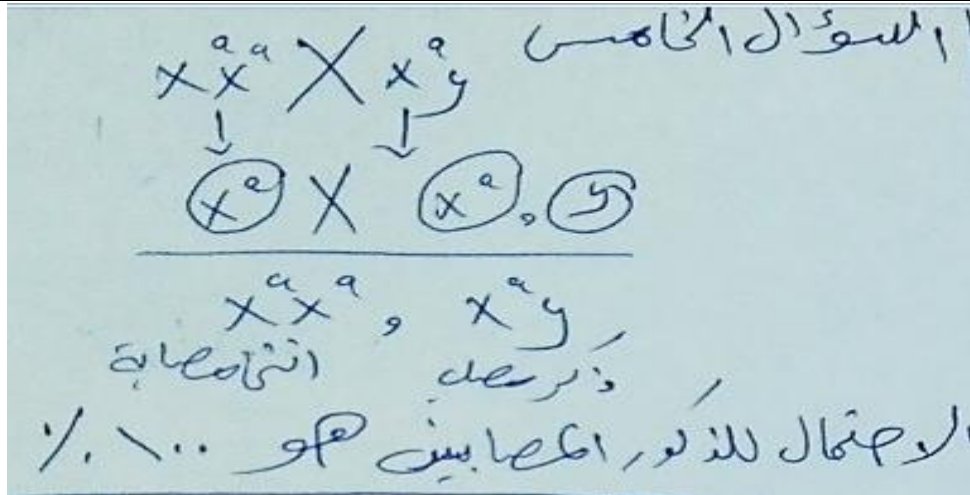 السؤال الخامس
XᵃXᵃ X Xᵃy
↓ ↓
Xᵃ X Xᵃ , y
XᵃXᵃ , Xᵃy
انثى مصابة ذكر مصاب
الاحتمال للذكور المصابين هو ١٠٠٪